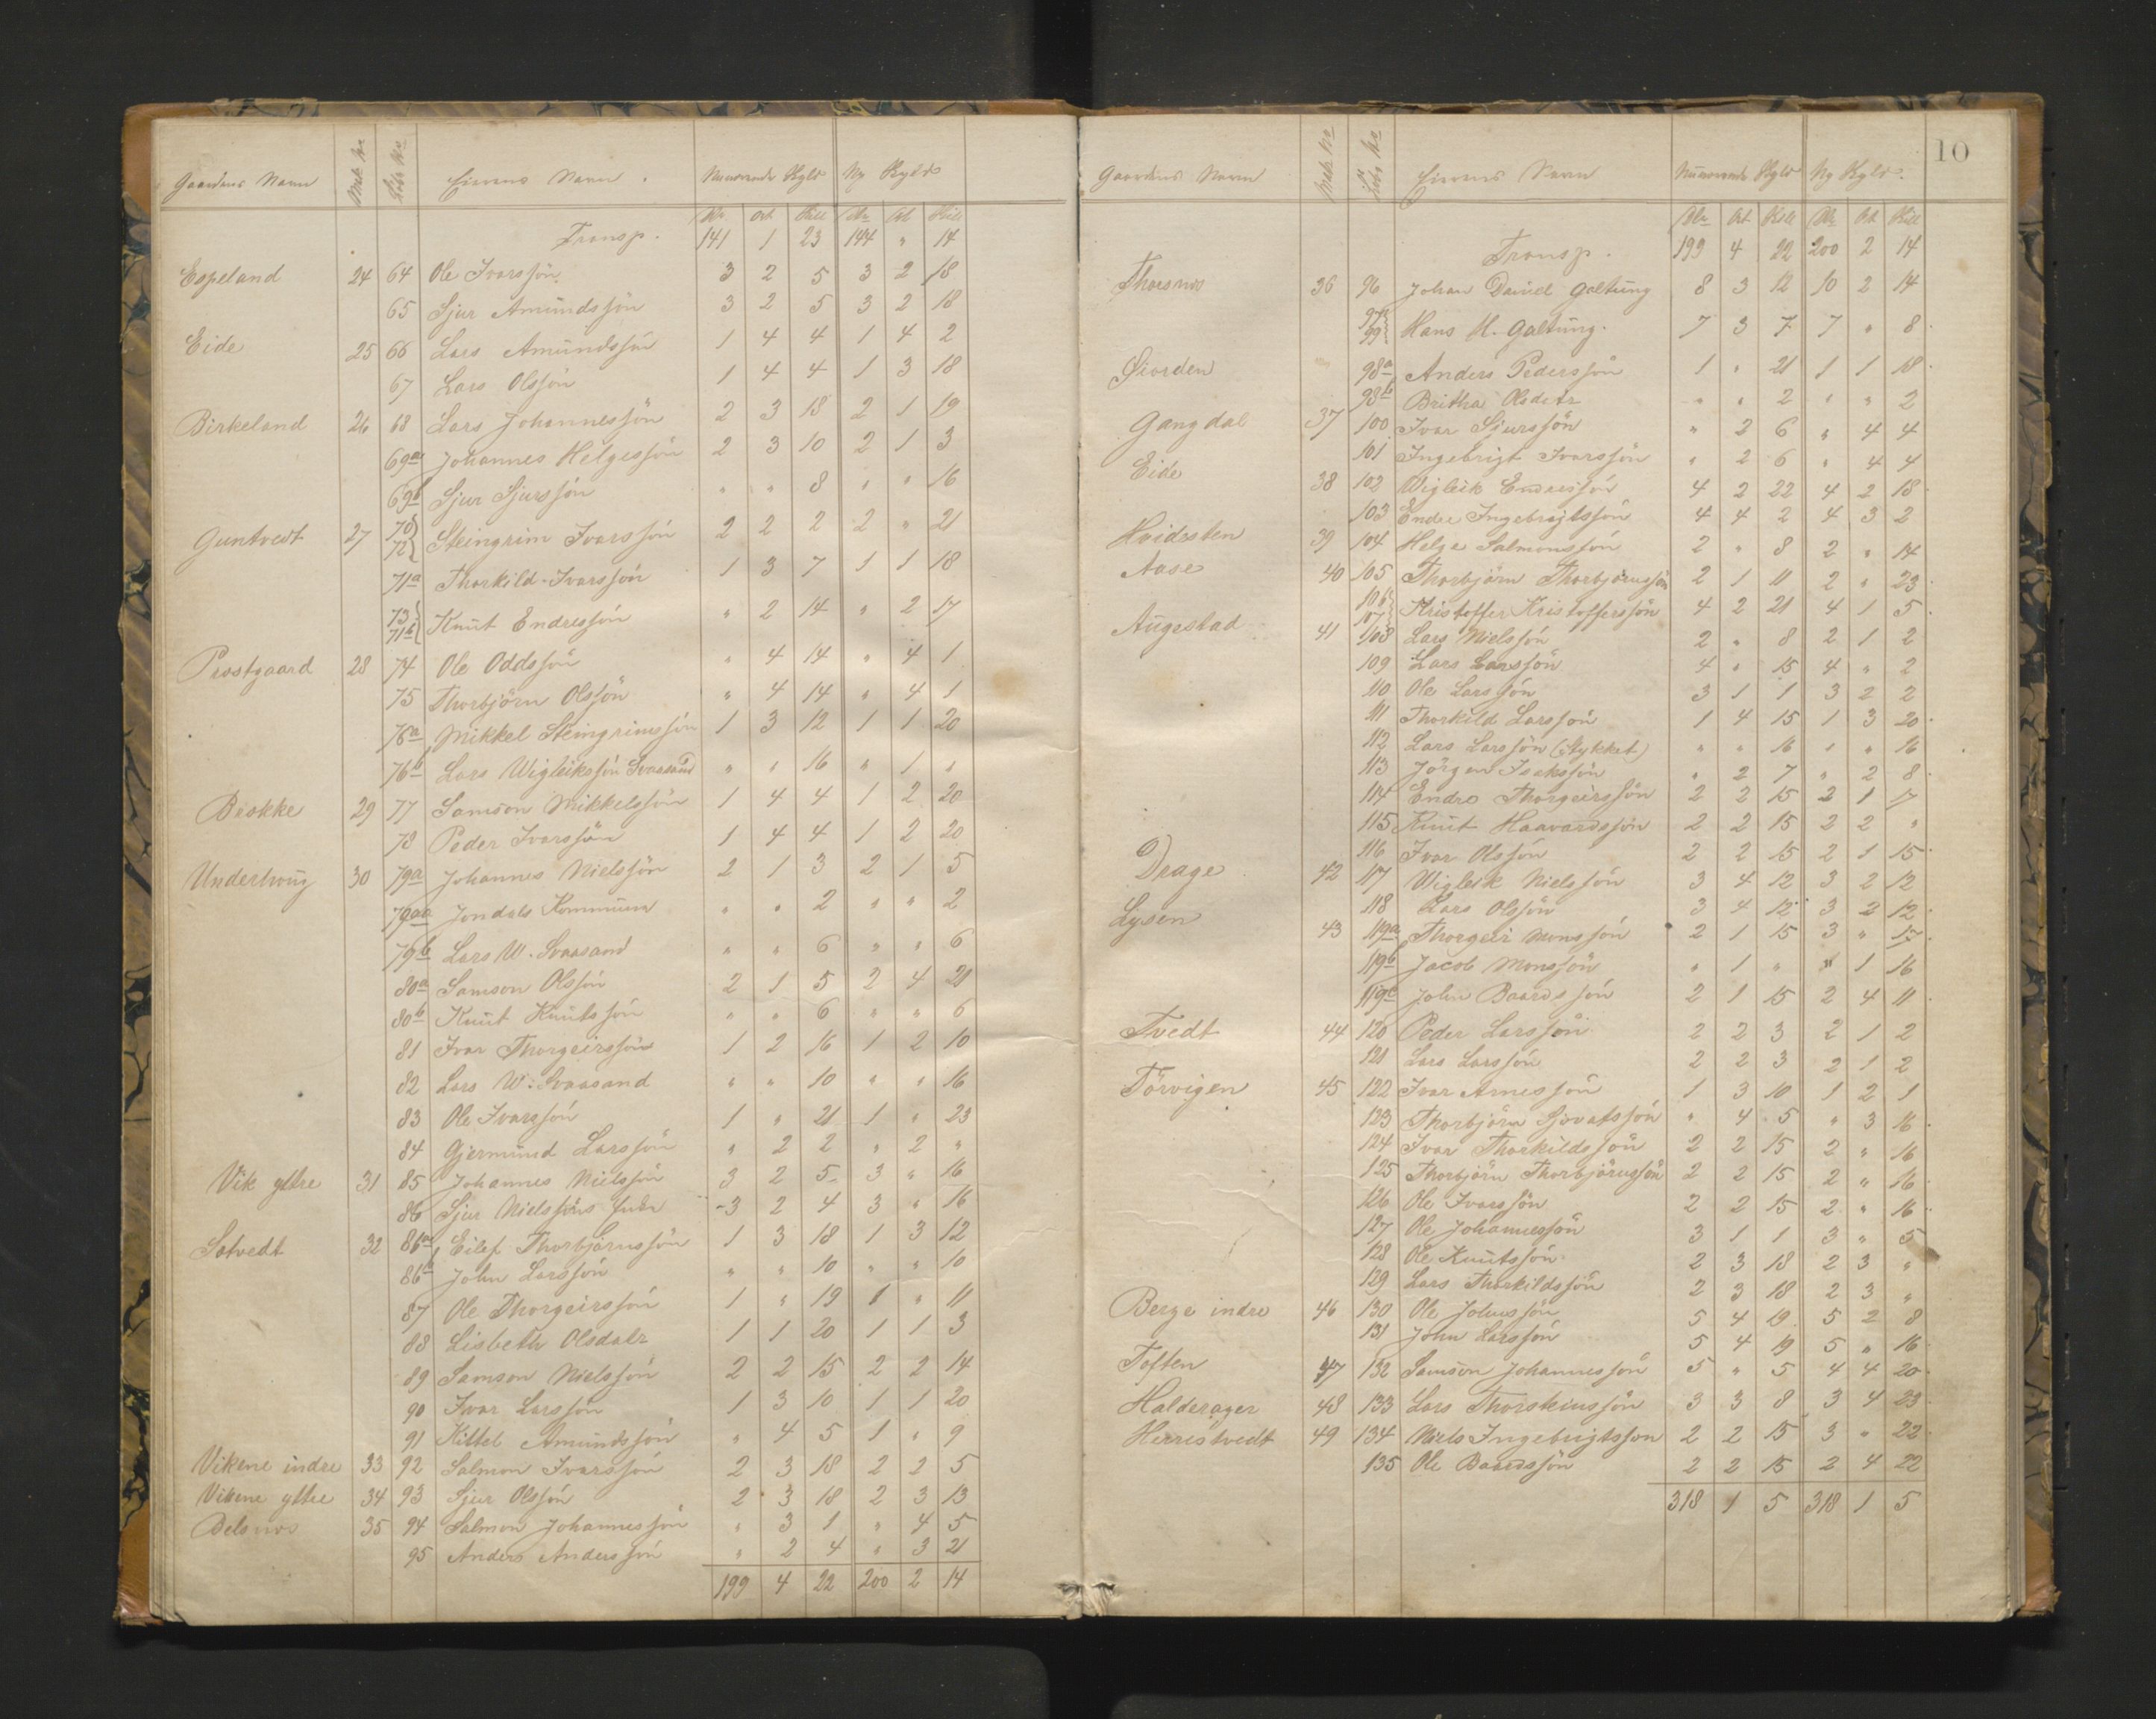 Gaardens Navn Matr No Løbe No Eierens Navn. Nuværende Skyld Ny Skyld
Dlr. Ort Skill Dlr Ort Skill
Transp. 141 1 23 144 " 14
Espeland 24 64 Ole Ivarssön 3 2 5 3 2 18
65 Sjur Amundssön 3 2 5 3 2 18
Eide 25 66 Lars Amundssön 1 4 4 1 4 2
67 Lars Olssön 1 4 4 1 3 18
Birkeland 26 68 Lars Johannessön 2 3 18 2 1 19
69a Johannes Helgessön 2 3 10 2 1 3
69b Sjur Sjurssön " " 8 " " 16
Guntvedt 27 70 72 Steingrim Ivarssön 2 2 2 2 " 21
71a Thorkild Ivarssön 1 3 7 1 1 18
73 71b Knut Endressön " 2 14 " 2 17
Prestgaard 28 74 Ole Oddssön " 4 14 " 4 1
75 Thorbjörn Olssön " 4 14 " 4 1
76a Mikkel Steingrimssön 1 3 12 1 1 20
76b Lars Wigleikssön Svaasand " " 16 " 1 "
Brokke 29 77 Samson Mikkelssön 1 4 4 1 2 20
78 Peder Ivarssön 1 4 4 1 2 20
Underhoug 30 79a Johannes Nielssön 2 1 3 2 1 5
79aa Jondals Kommune " " 2 " " 2
79b Lars W. Svaasand " " 6 " " 6
80a Samson Olssön 2 1 5 2 4 21
80b Knut Knutssön " " 6 " " 6
81 Ivar Thorgeirssön 1 2 16 1 2 10
82 Lars W. Svaasand " " 10 " " 16
83 Ole Ivarssön 1 " 21 1 " 23
84 Gjermund Larssön " 2 2 " 2 "
Vik yttre 31 85 Johannes Nielssön 3 2 5 3 " 16
86 Sjur Nielssöns 3 2 4 3 " 16
Solvedt 32 86a Eilef Thorbjörnssön 1 3 18 1 3 12
86b John Larssön " " 10 " " 10
87 Ole Thorgeirssön 1 " 19 1 " 11
88 Lisbeth Olsdatr 1 1 20 1 1 3
89 Samson Nielssön 2 2 15 2 2 14
90 Ivar Larssön 1 3 10 1 1 20
91 Kittel Amundssön " 4 5 1 " 9
Vikene indre 33 92 Salmon Ivarssön 2 3 18 2 2 5
Vikene yttre 34 93 Sjur Olssön 2 3 18 2 3 13
Belsnes 35 94 Salmon Johannessön " 3 1 " 4 5
95 Anders Anderssön " 2 4 " 3 21
199 4 22 200 2 14
10
Gaardens Navn Matr No Løbe No Eierens Navn Nuværende Skyld Ny Skyld.
Dlr Ort Skill Dlr Ort Skill
Transp. 199 4 22 200 2 14
Thorsnes 36 96 Johan Daniel Galtung 8 3 12 10 2 14
97 99 Hans H. Galtung. 7 3 7 7 " 8
98a Anders Pederssön 1 " 21 1 1 18
98b Britha Olsdatr " " 2 " " 2
Gangdal 37 100 Ivar Sjurssön " 2 6 " 4 4
101 Ingebrigt Ivarssön " 2 6 " 4 4
Eide 38 102 Wigleik Endressön 4 2 22 4 2 18
103 Endre Ingebrigtssön 4 4 2 4 3 2
Hvidesten 39 104 Helge Salmonssön 2 " 8 2 " 14
Aase 40 105 Thorbjörn Thorbjörnssön 2 1 11 2 " 23
106 107 Kristoffer Kristofferssön 4 2 21 4 1 5
Augestad 41 108 Lars Nielssön 2 " 8 2 1 2
109 Lars Larssön 4 " 15 4 " 2
110 Ole Larssön 3 1 1 3 2 2
111 Thorkild Larssön 1 4 15 1 3 20
112 Lars Larssön (Stykket) " " 16 " " 16
113 Jörgen Isakssön " 2 7 " 2 8
114 Endre Thorgeirssön 2 2 15 2 1 17
115 Knut Haavardssön 2 2 15 2 2 "
116 Ivar Olssön 2 2 15 2 1 15
Drage 42 117 Wigleik Nielssön 3 4 12 3 2 12
118 Lars Olssön 3 4 12 3 2 12
Lysen 43 119a Thorgeir Monssön 2 1 15 3 " 17
119b Jacob Monssön " 1 " " 1 16
119c John Baardssön 2 1 15 2 4 11
Tvedt 44 120 Peder Larssön 2 2 3 2 1 2
121 Lars Larssön 2 2 3 2 1 2
Törvigen 45 122 Ivar Arnessön 1 3 10 1 2 1
123 Thorbjörn Sjovatssön " 4 5 " 3 16
124 Ivar Thorkildssön 2 2 15 2 " 16
125 Thorbjörn Thorbjörnssön 2 2 15 2 " 16
126 Ole Ivarssön 2 2 15 2 " 16
127 Ole Johannessön 3 1 1 3 " 5
128 Ole Knutssön 2 3 18 2 3 "
129 Lars Thorkildssön 2 3 18 2 3 "
Berge indre 46 130 Ole Johnssön 5 4 19 5 2 8
131 John Larssön 5 4 19 5 " 16
Toften 47 132 Samson Johannessön 5 " 5 4 4 20
Halderager 48 133 Lars Thorskinssön 3 3 8 3 4 23
Herrestvedt 49 134 Niels Ingebrigtsson 2 2 15 3 " 22
135 Ole Baardssön 2 2 15 2 4 22
318 1 5 318 1 5